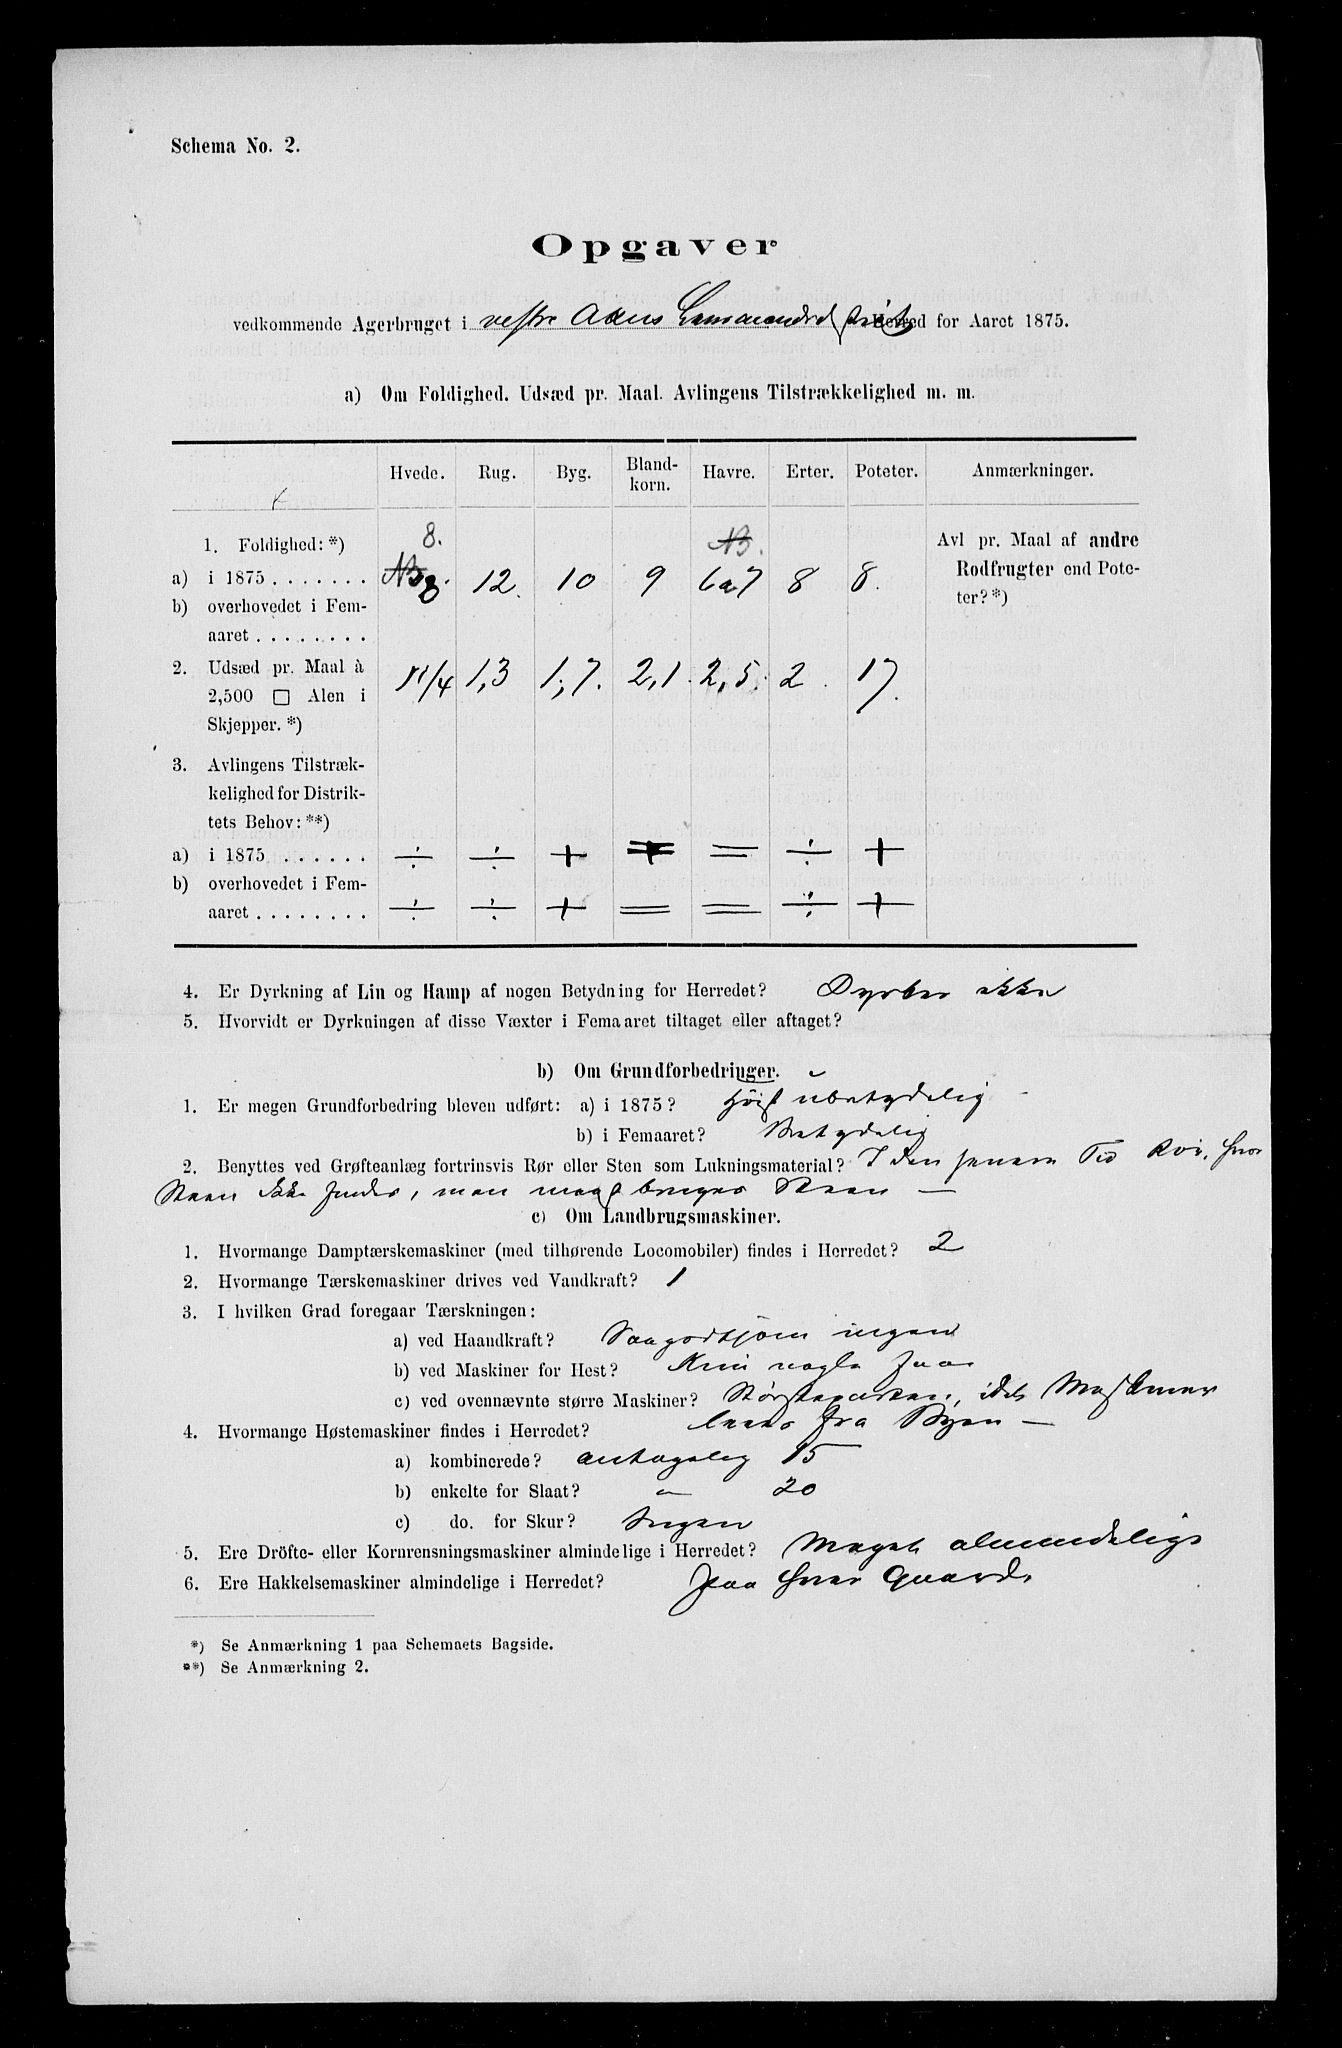 Schema No. 2.
Opgaver
vedkommende Agerbruget i vestre Akers Herred for Aaret 1875.
a) Om Foldighed. Udsæd pr. Maal. Avlingens Tilstrækkelighed m. m.
Hvede. Rug. Byg. Bland- Havre. Erter. Poteter. Anmærkninger.
korn.
1. Foldighed: *) 8. Avl pr. Maal af andre
a) i 1875 . . . . . . . 8. 12. 10 9 6 a 7 8 8. Rodfrugter end Pote-
b) overhovedet i Fem- ter? *)
aaret . . . . . . . .
2. Udsæd pr. Maal à 1 1/4 1,3 1,7. 2,1. 2,5. 2. 17.
2,500 □ Alen i
Skjepper. *)
3. Avlingens Tilstræk-
kelighed for Distrik-
tets Behov: **)
a) i 1875 . . . . . . ÷ ÷ + = = ÷ +
b) overhovedet i Fem-
aaret . . . . . . . . ÷ ÷ + = = ÷ +
4. Er Dyrkning af Lin og Hamp af nogen Betydning for Herredet? Dyrkes ikke
5. Hvorvidt er Dyrkningen af disse Væxter i Femaaret tiltaget eller aftaget?
b) Om Grundforbedringer.
1. Er megen Grundforbedring bleven udført: a) i 1875? Høist ubetydelig
b) i Femaaret? Betydelig
2. Benyttes ved Grøfteanlæg fortrinsvis Rør eller Sten som Lukningsmaterial? I den senere Tid Rør, hvor
Steen ikke findes, men mest bruges Steen —
c) Om Landbrugsmaskiner.
1. Hvormange Damptærskemaskiner (med tilhørende Locomobiler) findes i Herredet? 2
2. Hvormange Tærskemaskiner drives ved Vandkraft? 1
3. I hvilken Grad foregaar Tærskningen:
a) ved Haandkraft? Saagodtsom ingen
b) ved Maskiner for Hest? Kun nogle faa
c) ved ovennævnte større Maskiner? Størsteparten, idet Maskiner
4. Hvormange Høstemaskiner findes i Herredet? leies fra Byen —
a) kombinerede? antagelig 15
b) enkelte for Slaat? " 20
c) do. for Skur? Ingen
5. Ere Dröfte- eller Kornrensningsmaskiner almindelige i Herredet? Meget almindelige
6. Ere Hakkelsemaskiner almindelige i Herredet? paa hver Gaard.
*) Se Anmærkning 1 paa Schemaets Bagside.
**) Se Anmærkning 2.